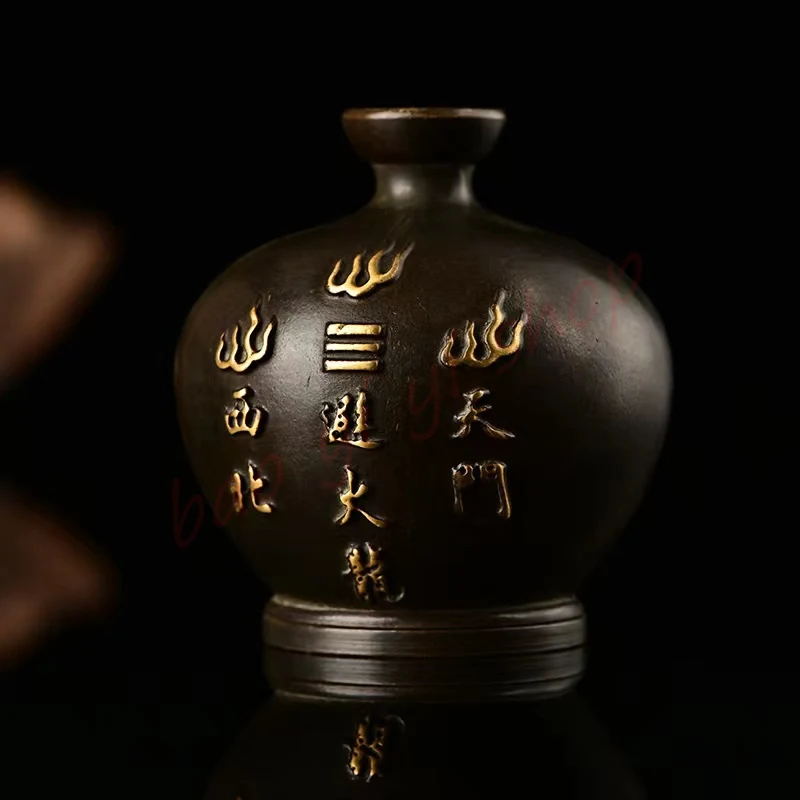 天門
☰避火龍
西北